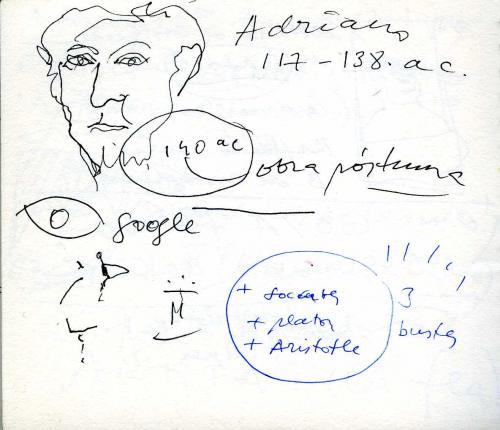 Adriano
117 - 138. a c.
140 ac
obra póstuma
google
M
+ Socrates
+ platon
+ Aristotle
3
bustes